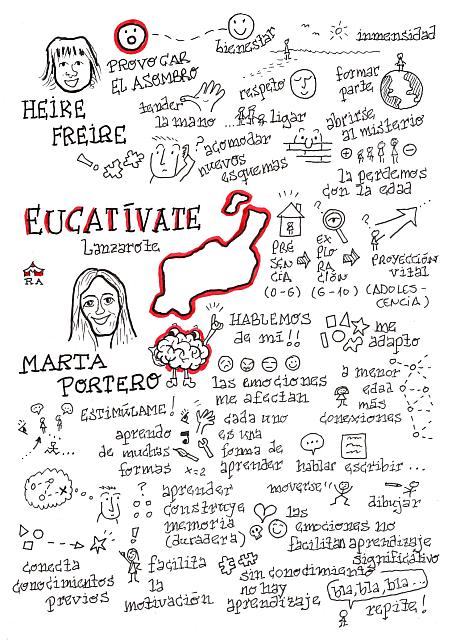 PROVOCAR
EL ASOMBRO
bienestar
inmensidad
HEIKE
FREIRE
tender
la mano
respeto
formar
parte
... ligar
abrirse
al misterio
? acomodar
nuevos
esquemas
la perdemos
con la edad
EUCATÍVATE
Lanzarote
RA
PRE
SEN
CIA
(0-6)
EX
PLO
RA
CIÓN
(6-10)
?
PROYECCIÓN
vital
(ADOLES-
CENCIA)
MARTA
PORTERO
HABLEMOS
de mí!!
me
adapto
las emociones
me afectan
a menor
edad
más
conexiones
ESTIMÚLAME!
aprendo
de muchas
formas
x=2
cada uno
es una
forma de
aprender
hablar
escribir ...
aprender
construye
memoria
(duradera)
moverse
dibujar
las
emociones no
facilitan aprendizaje
significativo
conecta
conocimientos
previos
facilita
la
motivación
sin conocimiento
no hay
aprendizaje
bla, bla, bla...
repite!